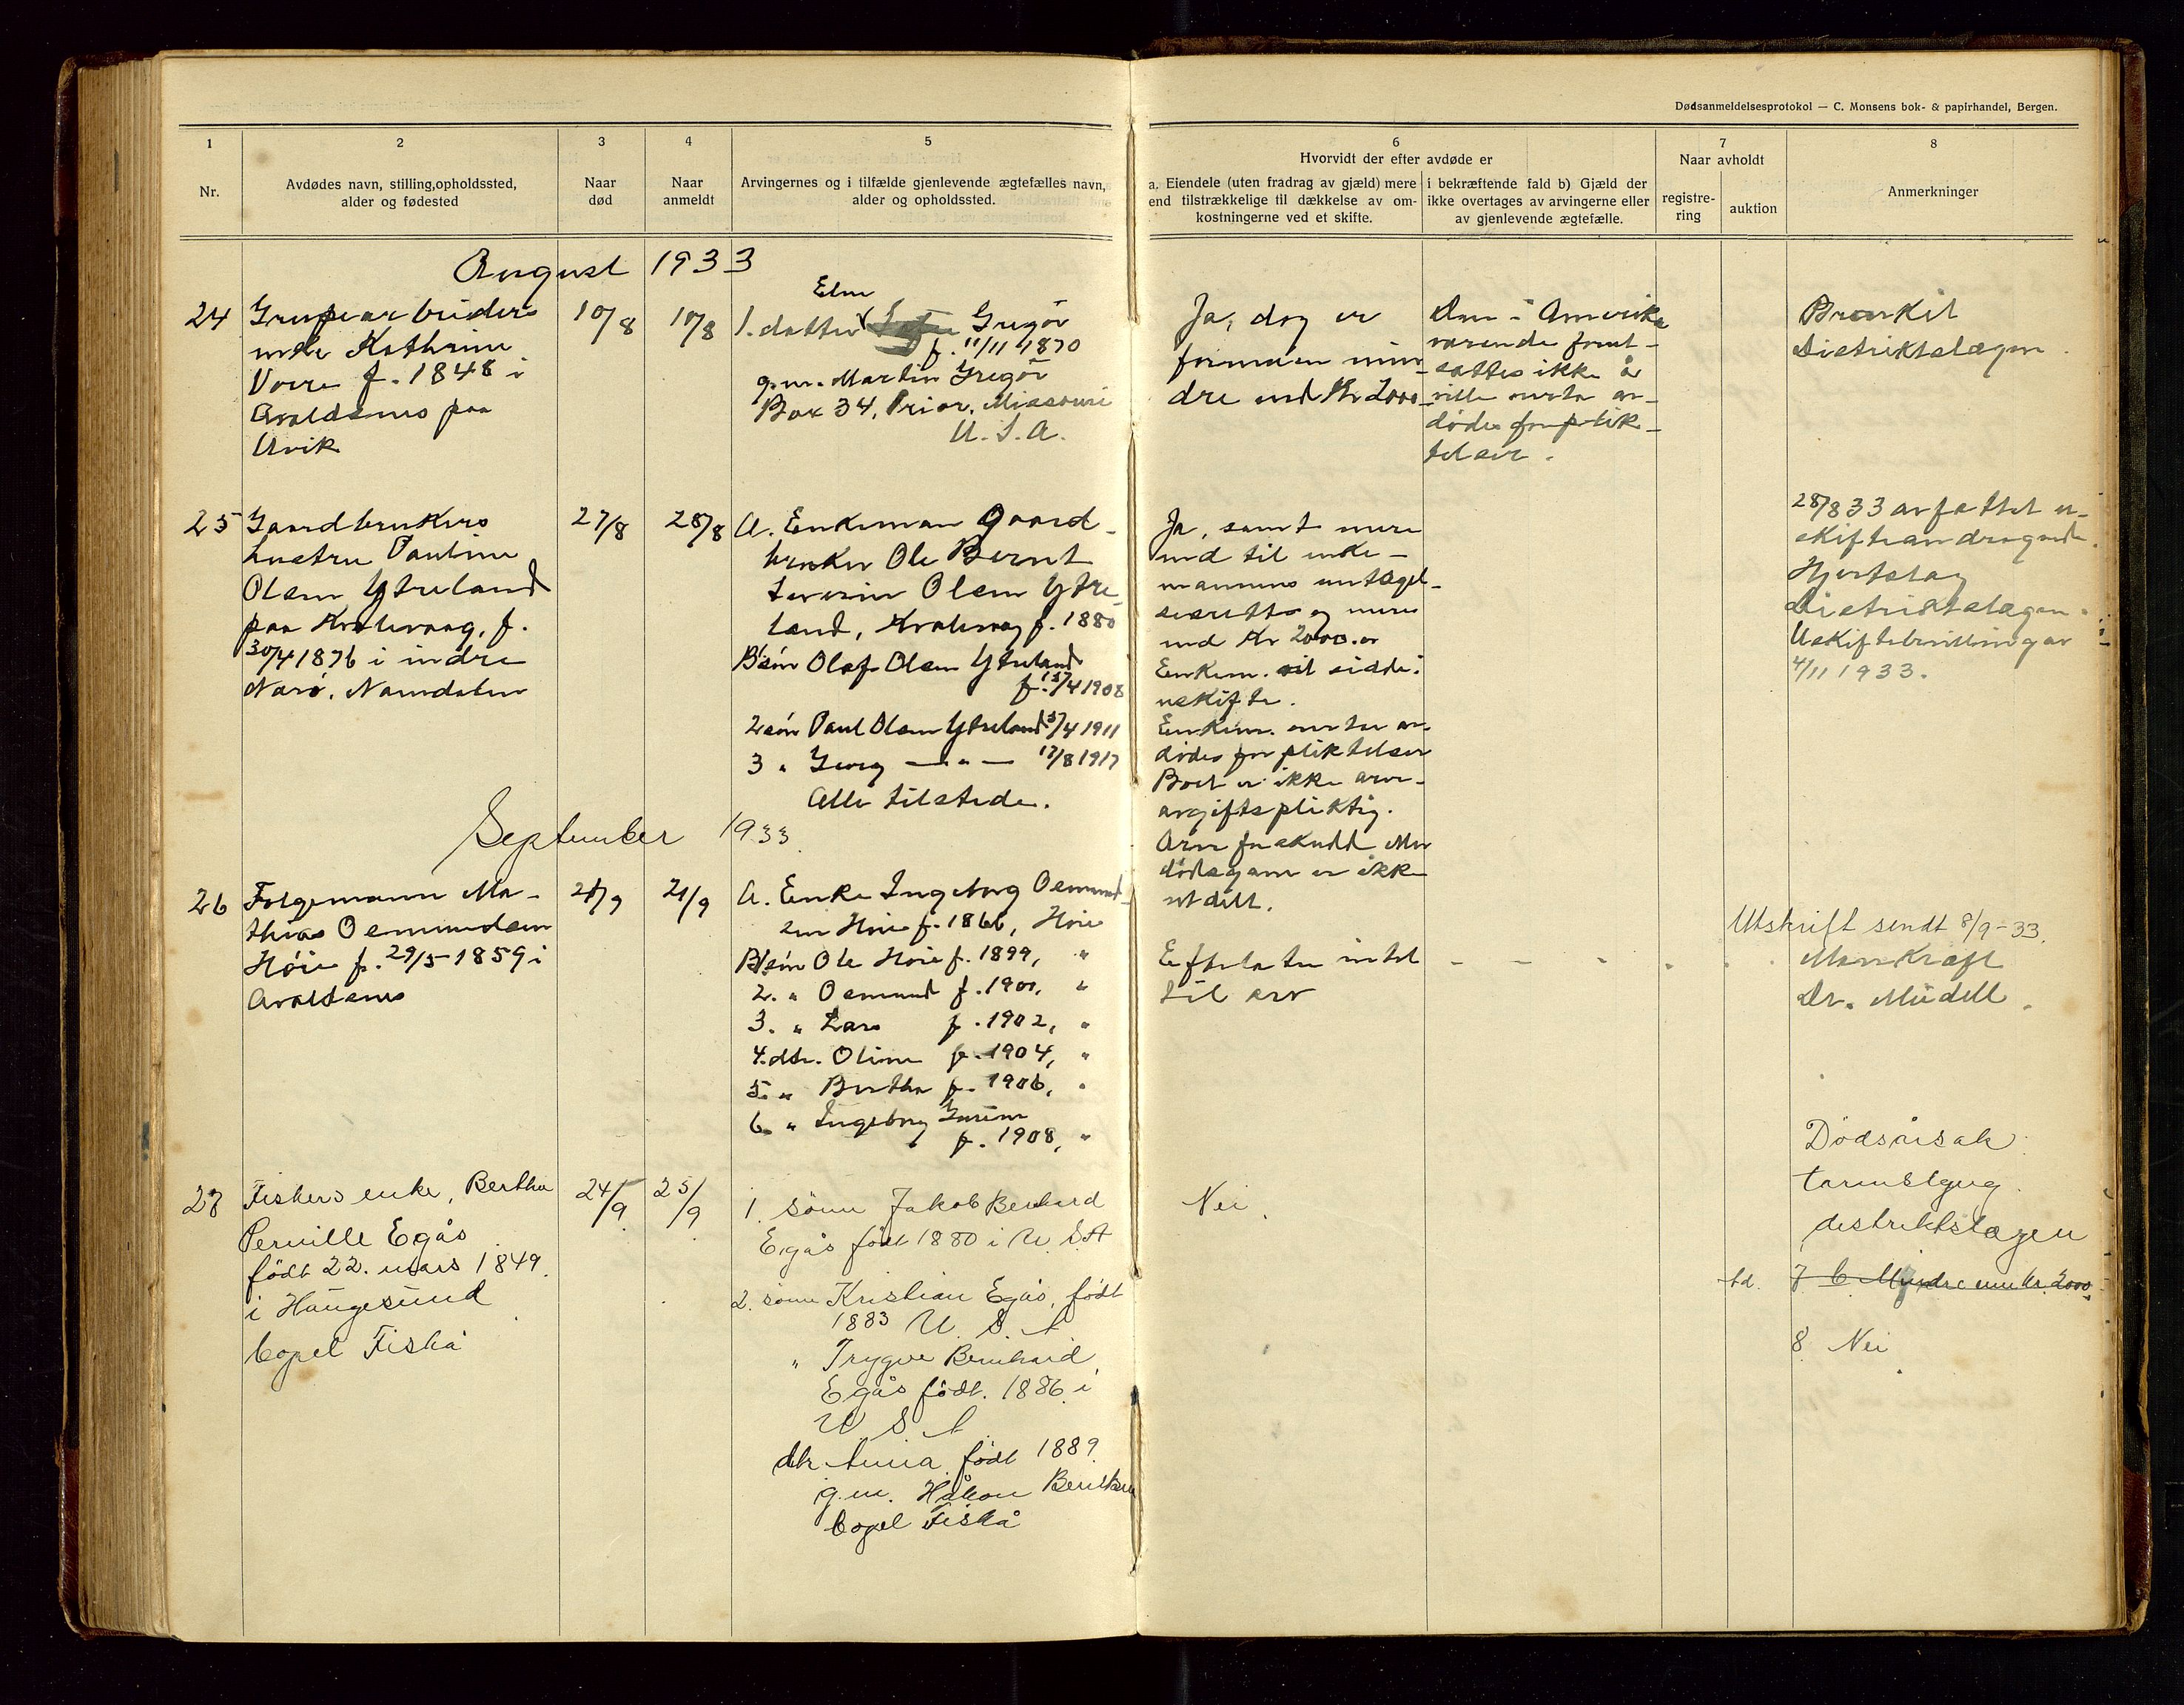 Dødsanmeldelsesprotokol — C. Monsens bok- & papirhandel, Bergen.
1
2
3
4
5
6
7
8
Nr.
Avdødes navn, stilling, opholdssted,
alder og fødested
Naar
død
Naar
anmeldt
Arvingernes og i tilfælde gjenlevende ægtefælles navn,
alder og opholdssted.
Hvorvidt der efter avdøde er
a. Eiendele (uten fradrag av gjæld) mere
end tilstrækkelige til dækkelse av om-
kostningerne ved et skifte.
i bekræftende fald b) Gjæld der
ikke overtages av arvingerne eller
av gjenlevende ægtefælle.
Naar avholdt
registre-
ring
auktion
Anmerkninger
August 1933
24
Grupearbeiders
enke Kathrine
Vorre f. 1848 i
Avaldsnes paa
Utvik
10/8
10/8
Elen
1. datter Gregør
f. 11/11 1870
g.m. Martin Gregør
Box 34, Prior, Missouri
U.S.A.
Ja, dog er
formuen min-
dre end Kr 2000
Den i Amerika
værende forut-
sattes ikke å
ville overta av-
dødes forplik-
telser.
Bronkit
Distriktslægen.
25
Gaardbrukers
hustru Pauline
Olsen Ytreland
paa Kralvaag, f.
30/4 1876 i indre
Narø, Namdalen
27/8
28/8
A. Enkeman Gaard-
bruker Ole Bernt
Severin Olsen Ytre-
land, Kralvaag f. 1880
B 1 søn Olaf Olsen Ytreland
f. 15/4 1908
2 søn Paul Olsen Ytreland 5/4 1911
3 " Georg — " — 17/8 1917
Alle tilstede.
Ja, samt mere
end til enke-
mannens untagel-
sesrett og mere
end Kr 2000.00
Enkem. vil sidde i
uskifte.
Enkem. overtar av-
dødes forpliktelser
Boet er ikke arve-
avgiftspliktig.
Arv forskudd eller
dødsgave er ikke
utdelt.
28/8 33 avfattet u-
skifteandragende.
Hjertslag
Distriktslægen.
Uskiftebevilling av
4/11 1933.
September 1933
26
Folgemann Ma-
thias Osmundsen
Høie f. 29/5 1859 i
Avaldsnes
21/9
A. Enke Ingeborg Osmund-
sen Høie f. 1866, Høie
B 1 søn Ole Høie f. 1899, "
2. " Osmund f. 1901, "
3. " Lars f. 1902, "
4. dtr. Oline f. 1904, "
5. " Bertha f. 1906, "
6. " Ingeborg
f. 1908, "
Efterlater intet
til arv
Utskrift sendt 8/9-33.
Mavekræft
Dr. Müdell.
27
Fiskers enke, Bertha
Pernille Egås
født 22. mars 1849.
i Haugesund
bopel Fiskå
24/9
25/9
1. sønn Jakob Bernhard
Egås født 1880 i U.S.A
2. sønn Kristian Egås, født
1883 U.S.A
" Trygve Bernhard
Egås født. 1886 i
U S A
dtr Anna født 1889
g.m. Håkon
bopel Fiskå
Nei.
Dødsårsak:
tarmslyng.
distriktslægen
td. 7 b. Mindre enn kr. 2000.
8 Nei